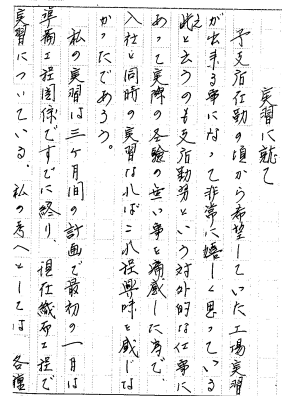 実習に就て
予支店在勤の頃から希望していた工場実習
が出来る事になって非常に嬉しく思っている
此と云うのも支店勤务という対外的な仕事に
あって実際の経験の無い事を痛感した為で、
入社と同時の実習なればこれ程興味を感じな
かったであろう。
私の実習は三ヶ月間の計画で最初の一月は
準備工程関係ですでに終り、現在織布工程で
実習についている。私の考へとしては、各種